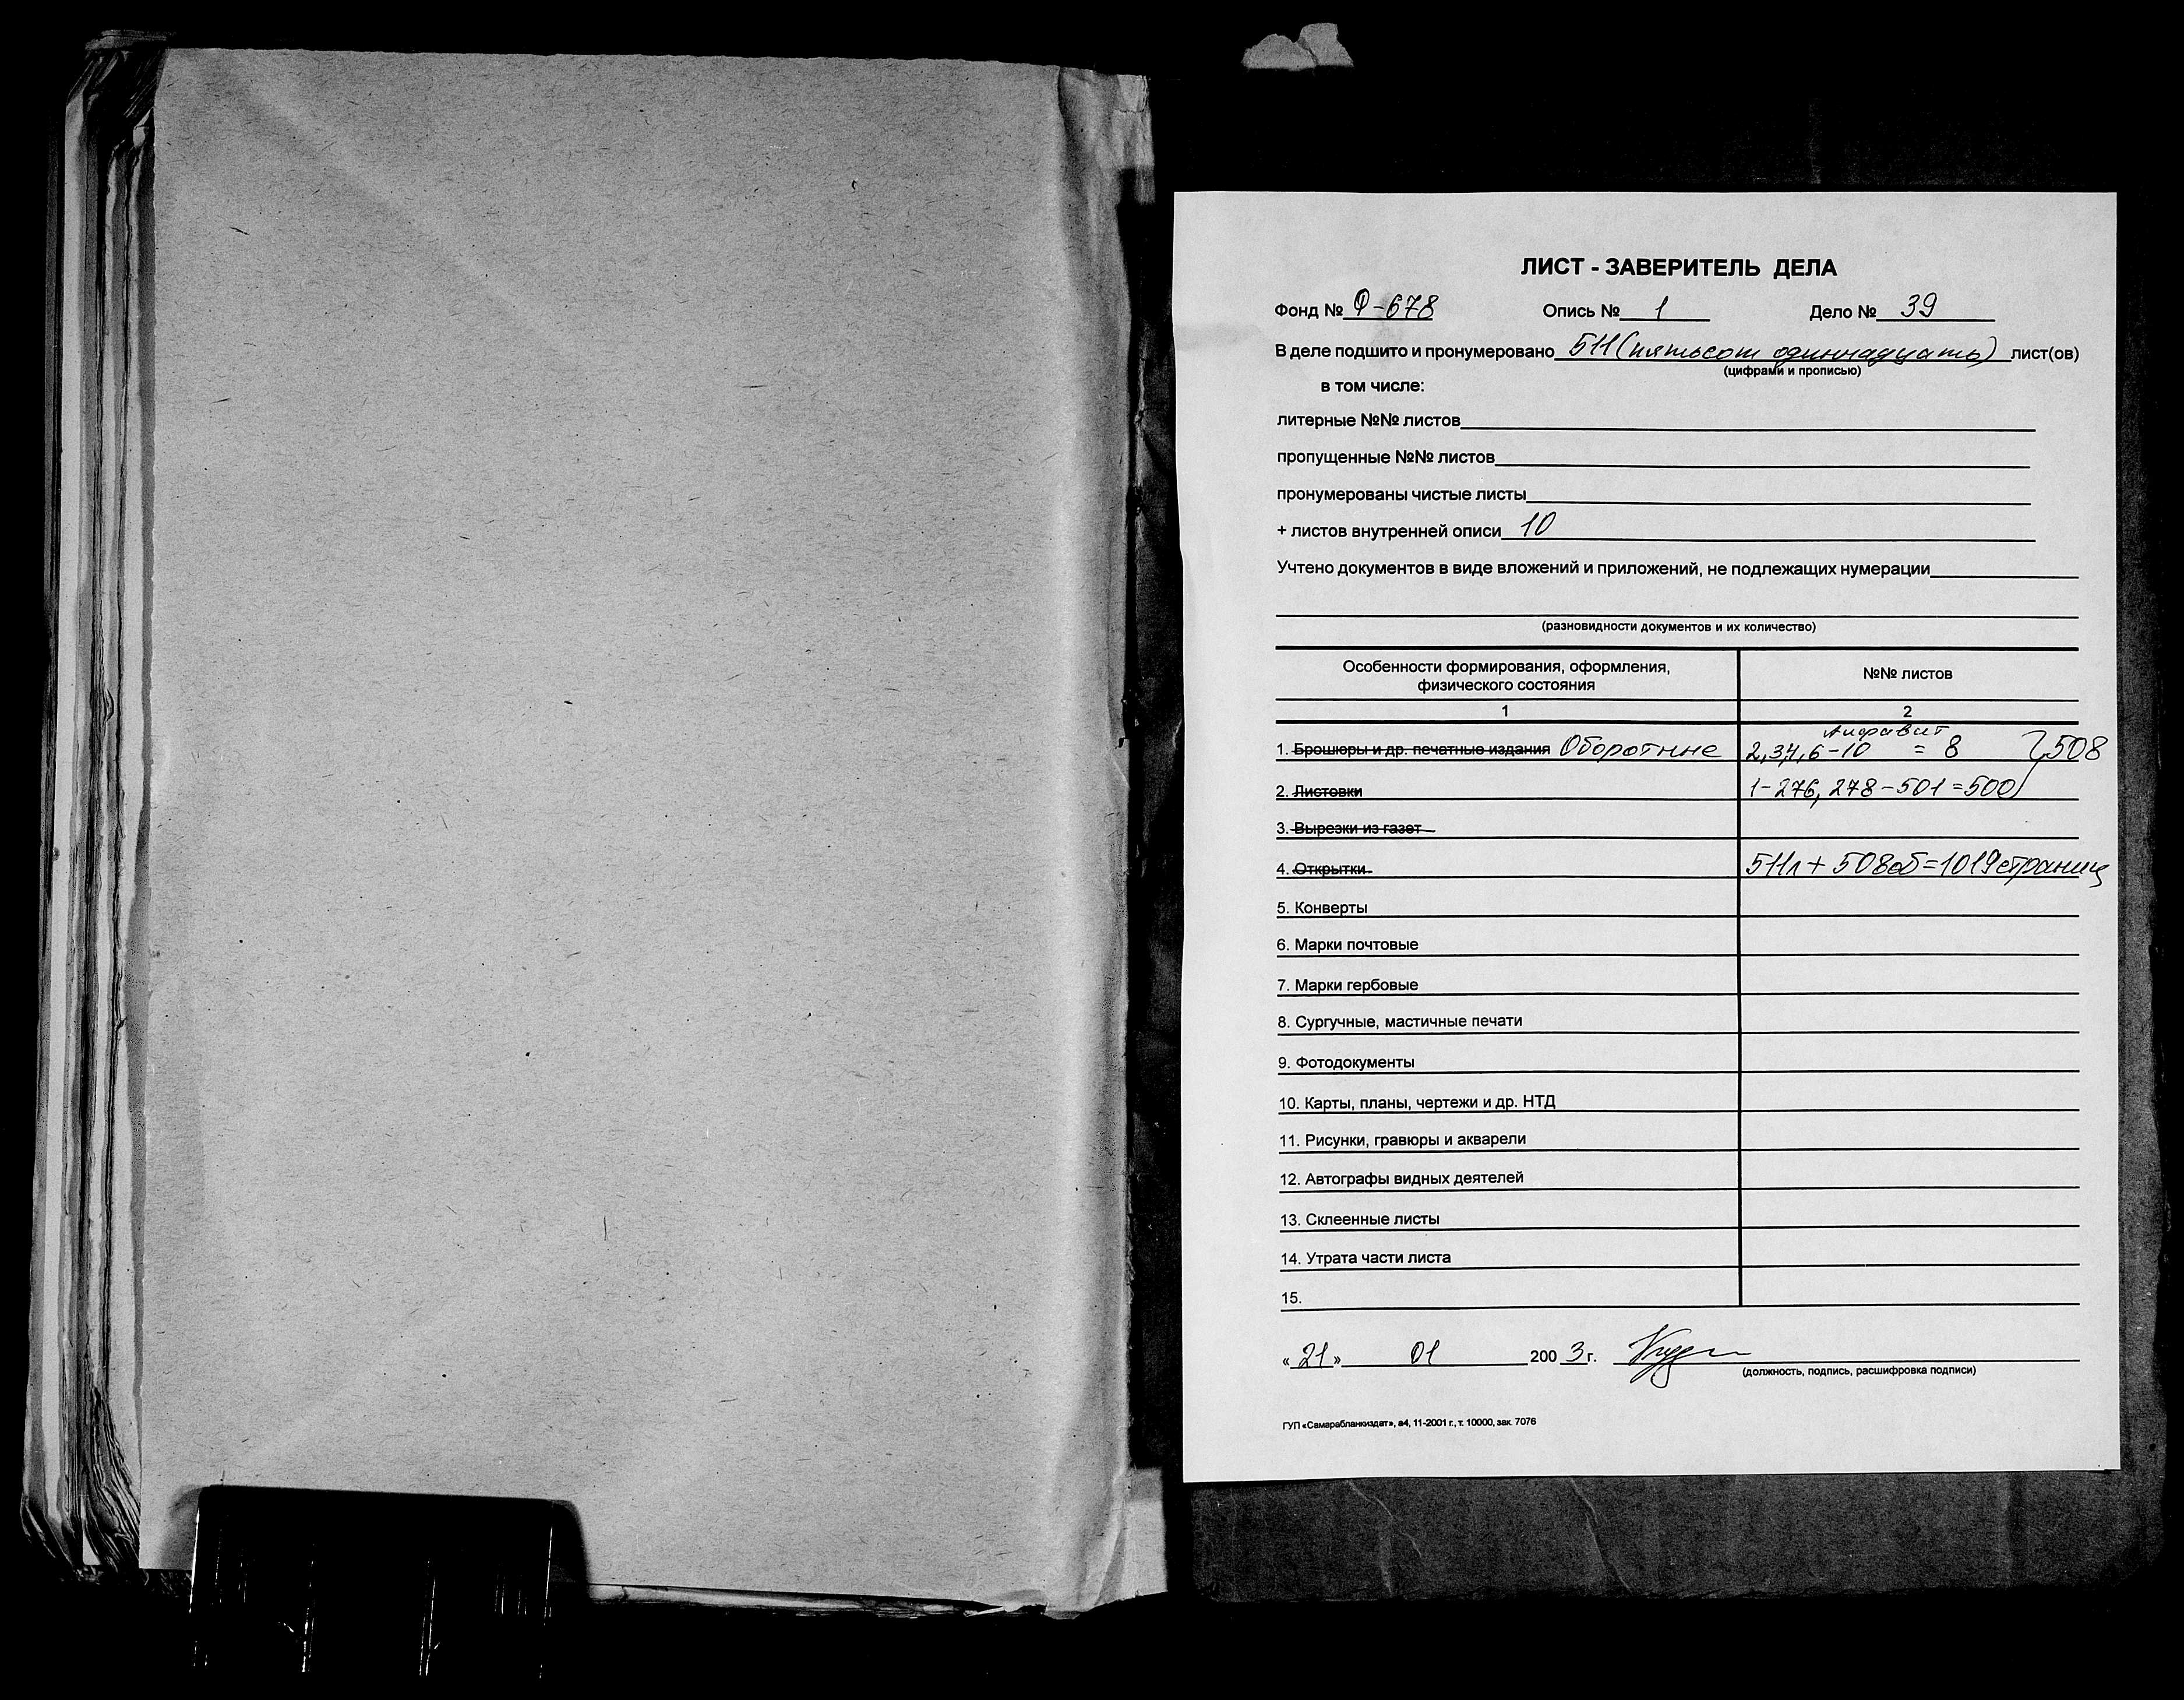 ЛИСТ - ЗАВЕРИТЕЛЬ ДЕЛА
Фонд № Ф-678 Опись № 1 Дело № 39
В деле подшито и пронумеровано 511 (пятьсот одиннадцать) лист(ов)
(цифрами и прописью)
в том числе:
литерные №№ листов
пропущенные №№ листов
пронумерованы чистые листы
+ листов внутренней описи 10
Учтено документов в виде вложений и приложений, не подлежащих нумерации
(разновидности документов и их количество)
Особенности формирования, оформления,
физического состояния
№№ листов
1 2
Алфавит
1. Брошюры и др. печатные издания Оборотные 2,3,4,6-10 = 8 }508
2. Листовки 1-276, 278-501=500
3. Вырезки из газет
4. Открытки 511л + 508об=1019страниц
5. Конверты
6. Марки почтовые
7. Марки гербовые
8. Сургучные, мастичные печати
9. Фотодокументы
10. Карты, планы, чертежи и др. НТД
11. Рисунки, гравюры и акварели
12. Автографы видных деятелей
13. Склеенные листы
14. Утрата части листа
15.
« 21 » 01 200 3 г.
(должность, подпись, расшифровка подписи)
ГУП «Самарабланкиздат», а4, 11-2001 г., т. 10000, зак. 7076